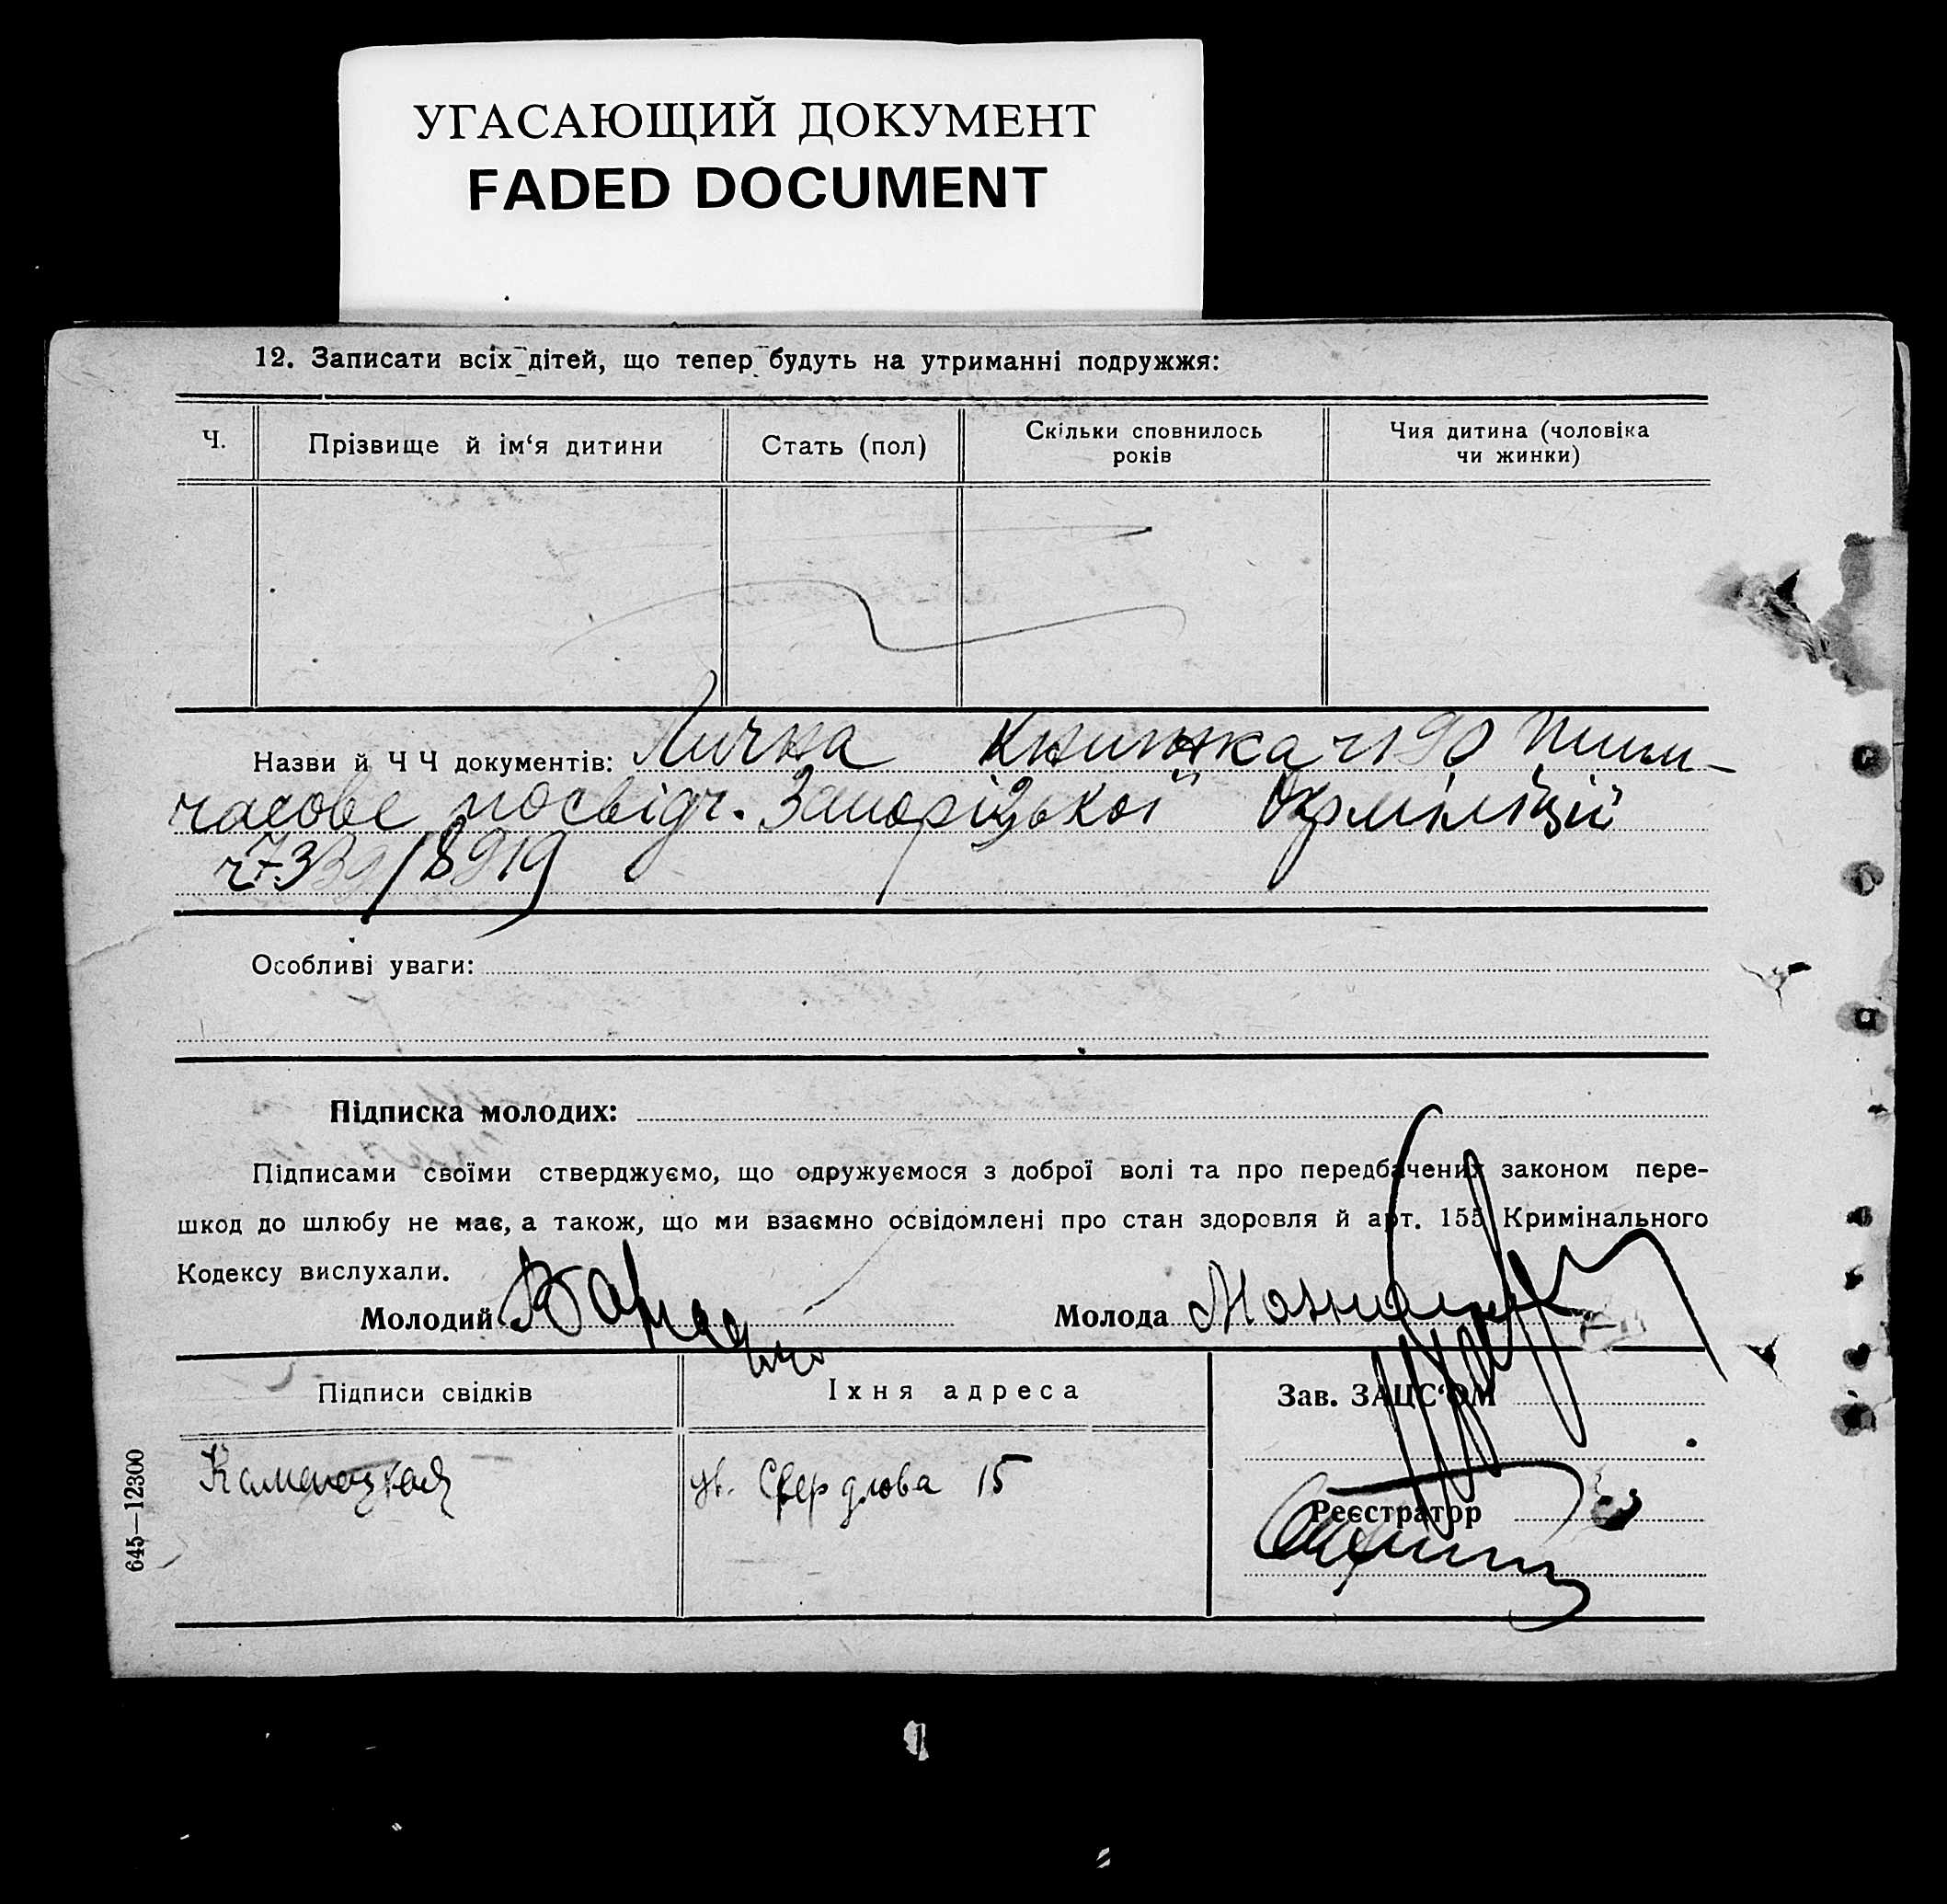 УГАСАЮЩИЙ ДОКУМЕНТ
FADED DOCUMENT
12. Записати всіх дітей, що тепер будуть на утриманні подружжя:
Ч. Прізвище й ім‘я дитини Стать (пол) Скільки сповнилось років Чия дитина (чоловіка чи жинки)
Назви й Ч Ч документів: Лична Книжка ч 190 Тим-
часове посвідч. Запоріцької Окрміліції
ч 7339/8919
Особливі уваги:
Підписка молодих:
Підписами своїми стверджуємо, що одружуємося з доброї волі та про передбачених законом пере-
шкод до шлюбу не має, а також, що ми взаємно освідомлені про стан здоровля й арт. 155 Кримінального
Кодексу вислухали.
Молодий Молода
Підписи свідків Їхня адреса Зав. ЗАЦС‘ОМ
Каменецкая ул. Свердлова 15
Реєстратор
645—12300